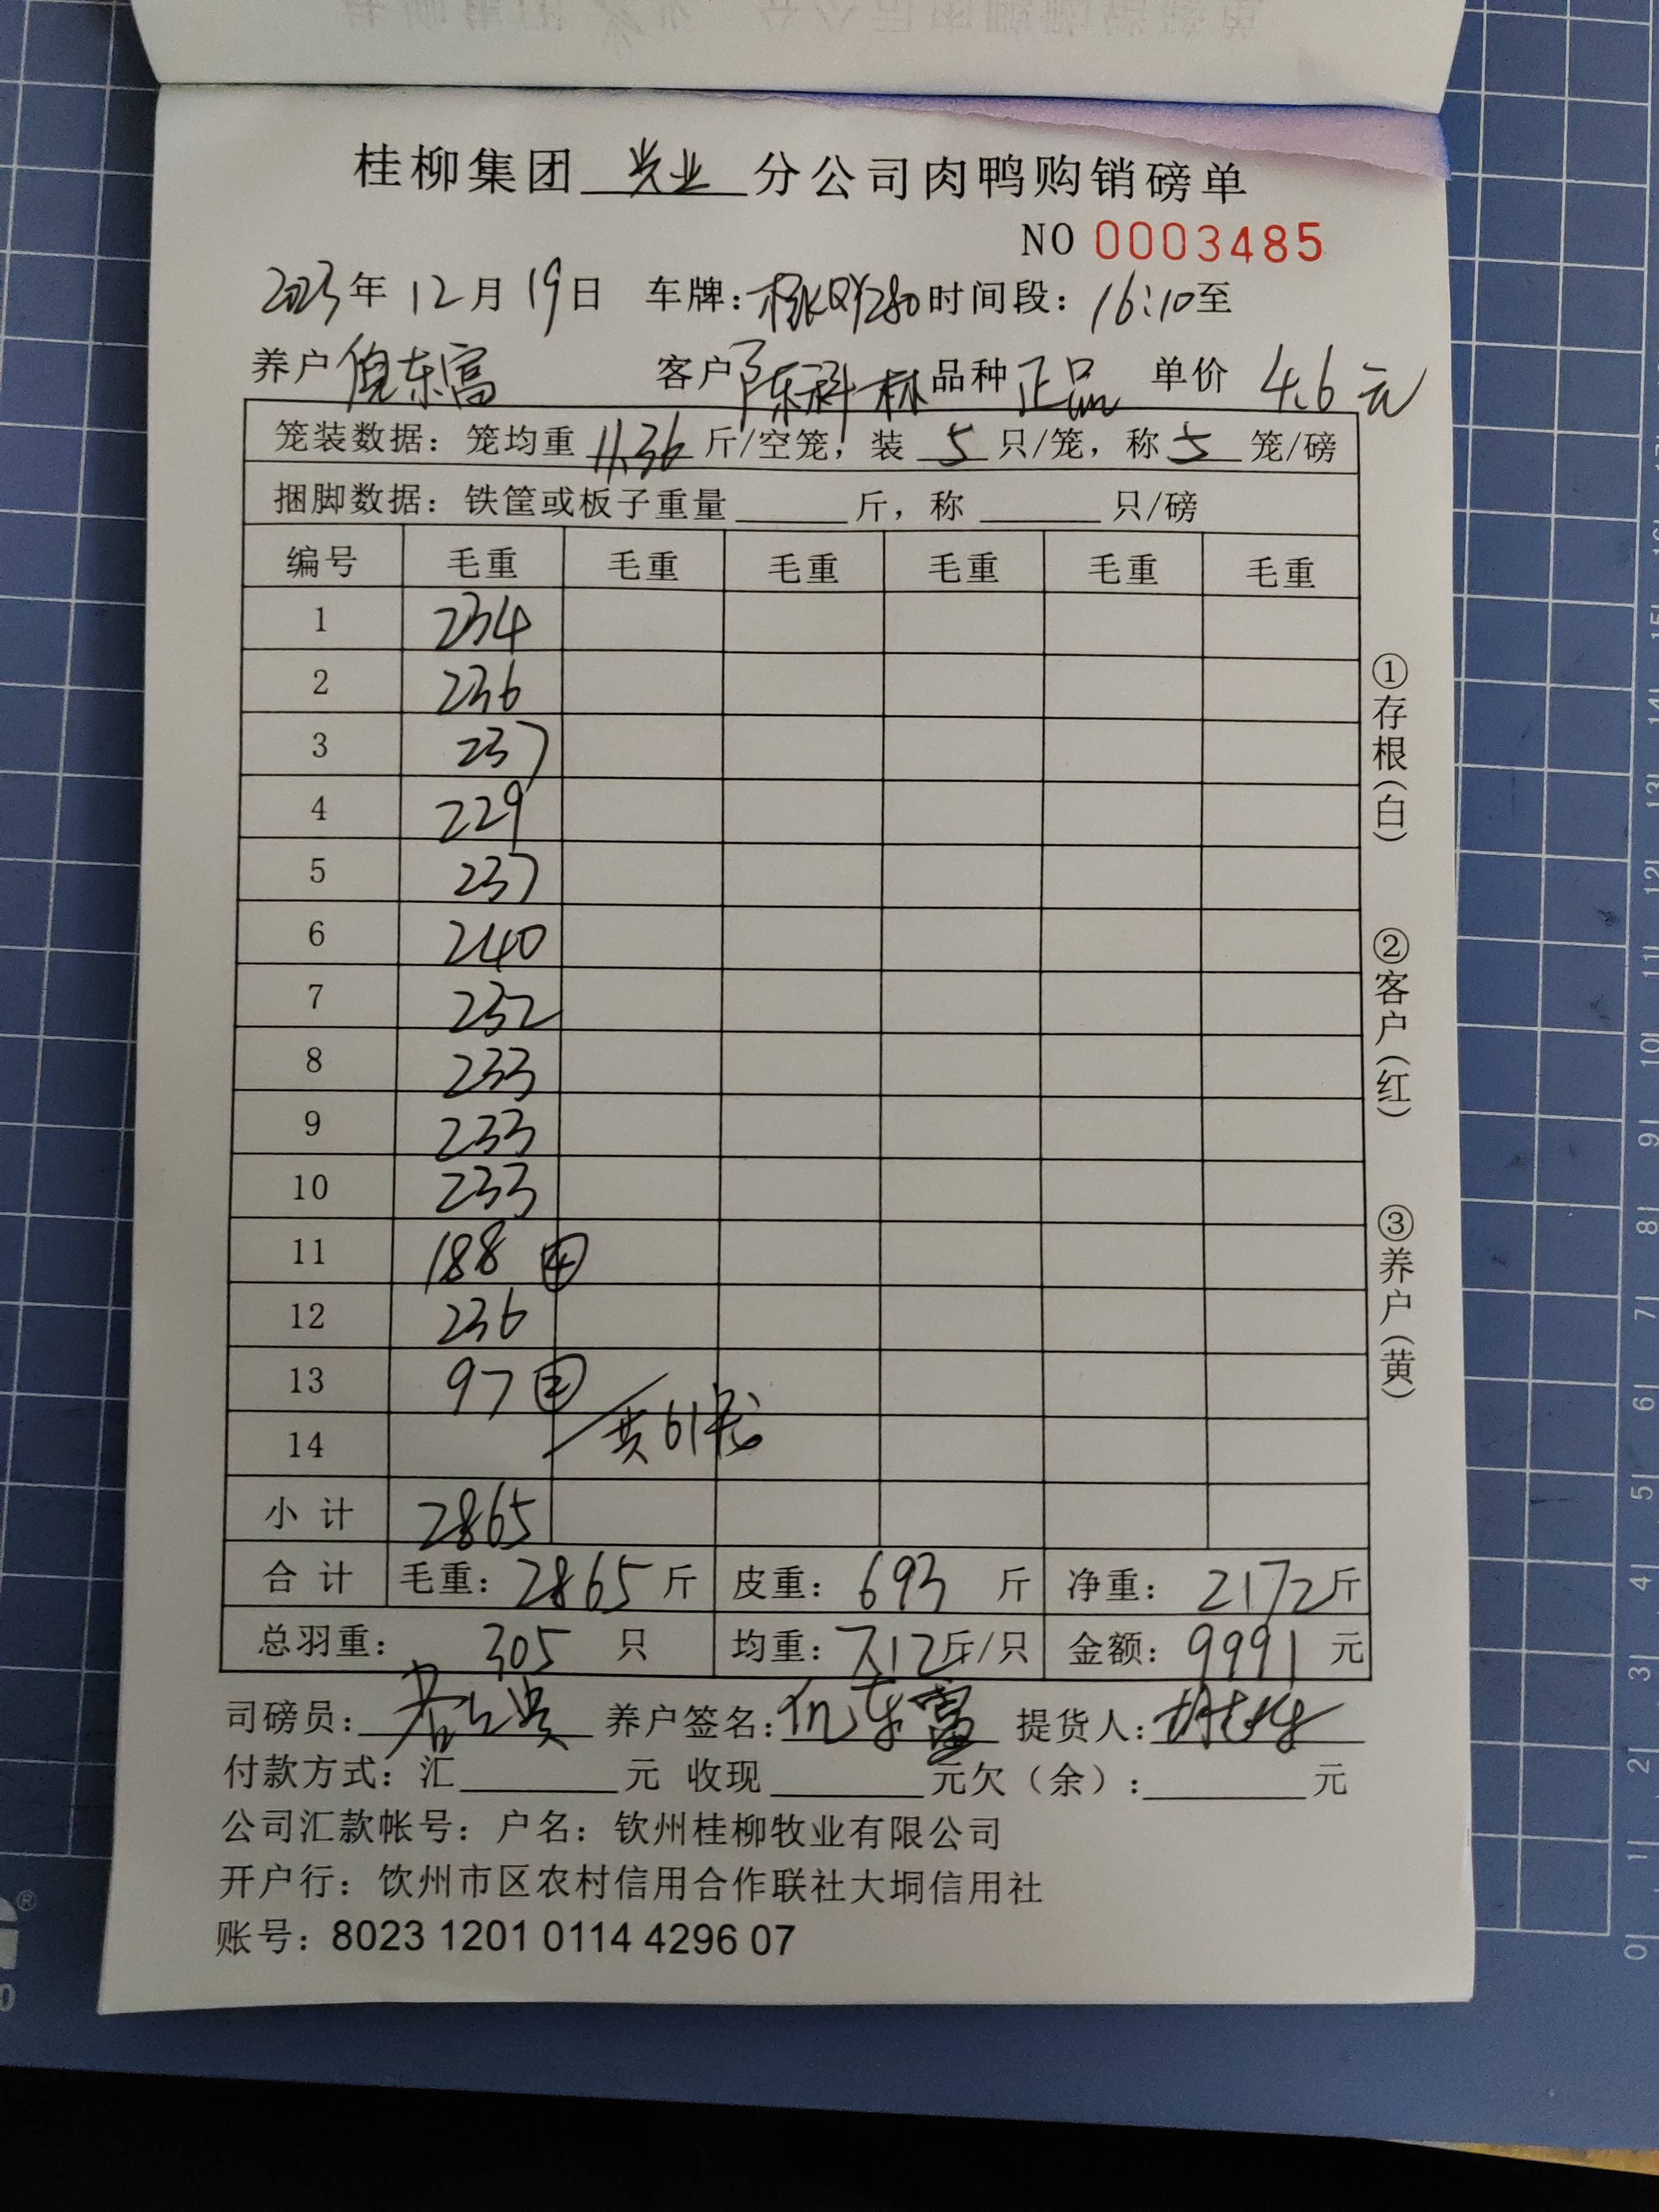 桂柳集团 兴业 分公司肉鸭购销磅单
NO 0003485
2023年 12月 19日 车牌: 时间段: 16:10至
养户 倪东富 客户 陈科林 品种 正品 单价 4.6元
笼装数据: 笼均重 11.36 斤/空笼, 装 5 只/笼, 称 5 笼/磅
捆脚数据: 铁筐或板子重量 斤, 称 只/磅
编号 毛重 毛重 毛重 毛重 毛重 毛重
1 234
2 236
3 237
4 229
5 237
6 240
7 232
8 233
9 233
10 233
11 188 ④
12 236
13 97 ②
14 共61笼
小计 2865
合计 毛重: 2865 斤 皮重: 693 斤 净重: 2172 斤
总羽重: 305 只 均重: 7.12 斤/只 金额: 9991 元
司磅员: 养户签名: 倪东富 提货人:
付款方式: 汇 元 收现 元欠(余): 元
公司汇款帐号: 户名: 钦州桂柳牧业有限公司
开户行: 钦州市区农村信用合作联社大垌信用社
账号: 8023 1201 0114 4296 07
①存根(白)
②客户(红)
③养户(黄)
0 1 2 3 4 5 6 7 8 9 10 11 12 13 14 15 16